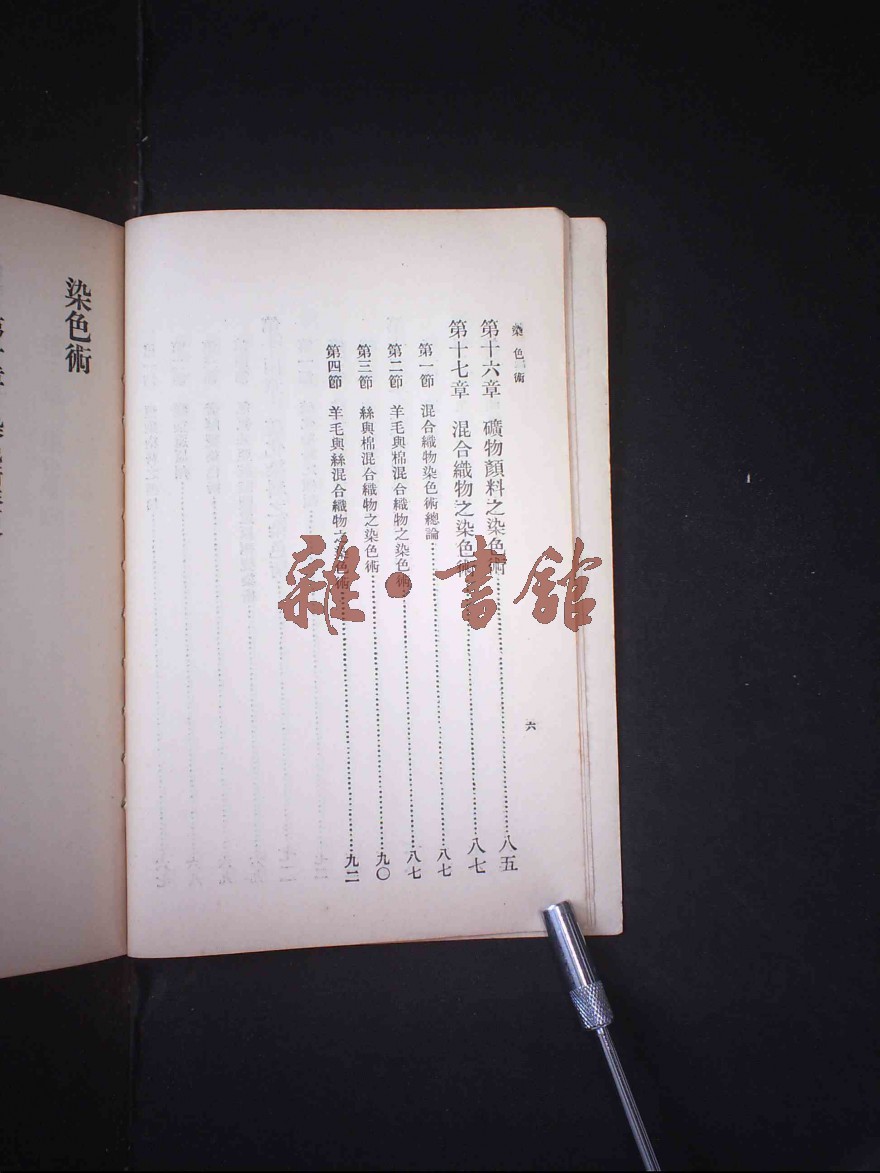 染色術
六
第十六章 礦物顏料之染色術……八五
第十七章 混合織物之染色術……八七
第一節 混合織物染色術總論……八七
第二節 羊毛與棉混合織物之染色術……八七
第三節 絲與棉混合織物之染色術……九〇
第四節 羊毛與絲混合織物之染色術……九二
染色術
雜·書館